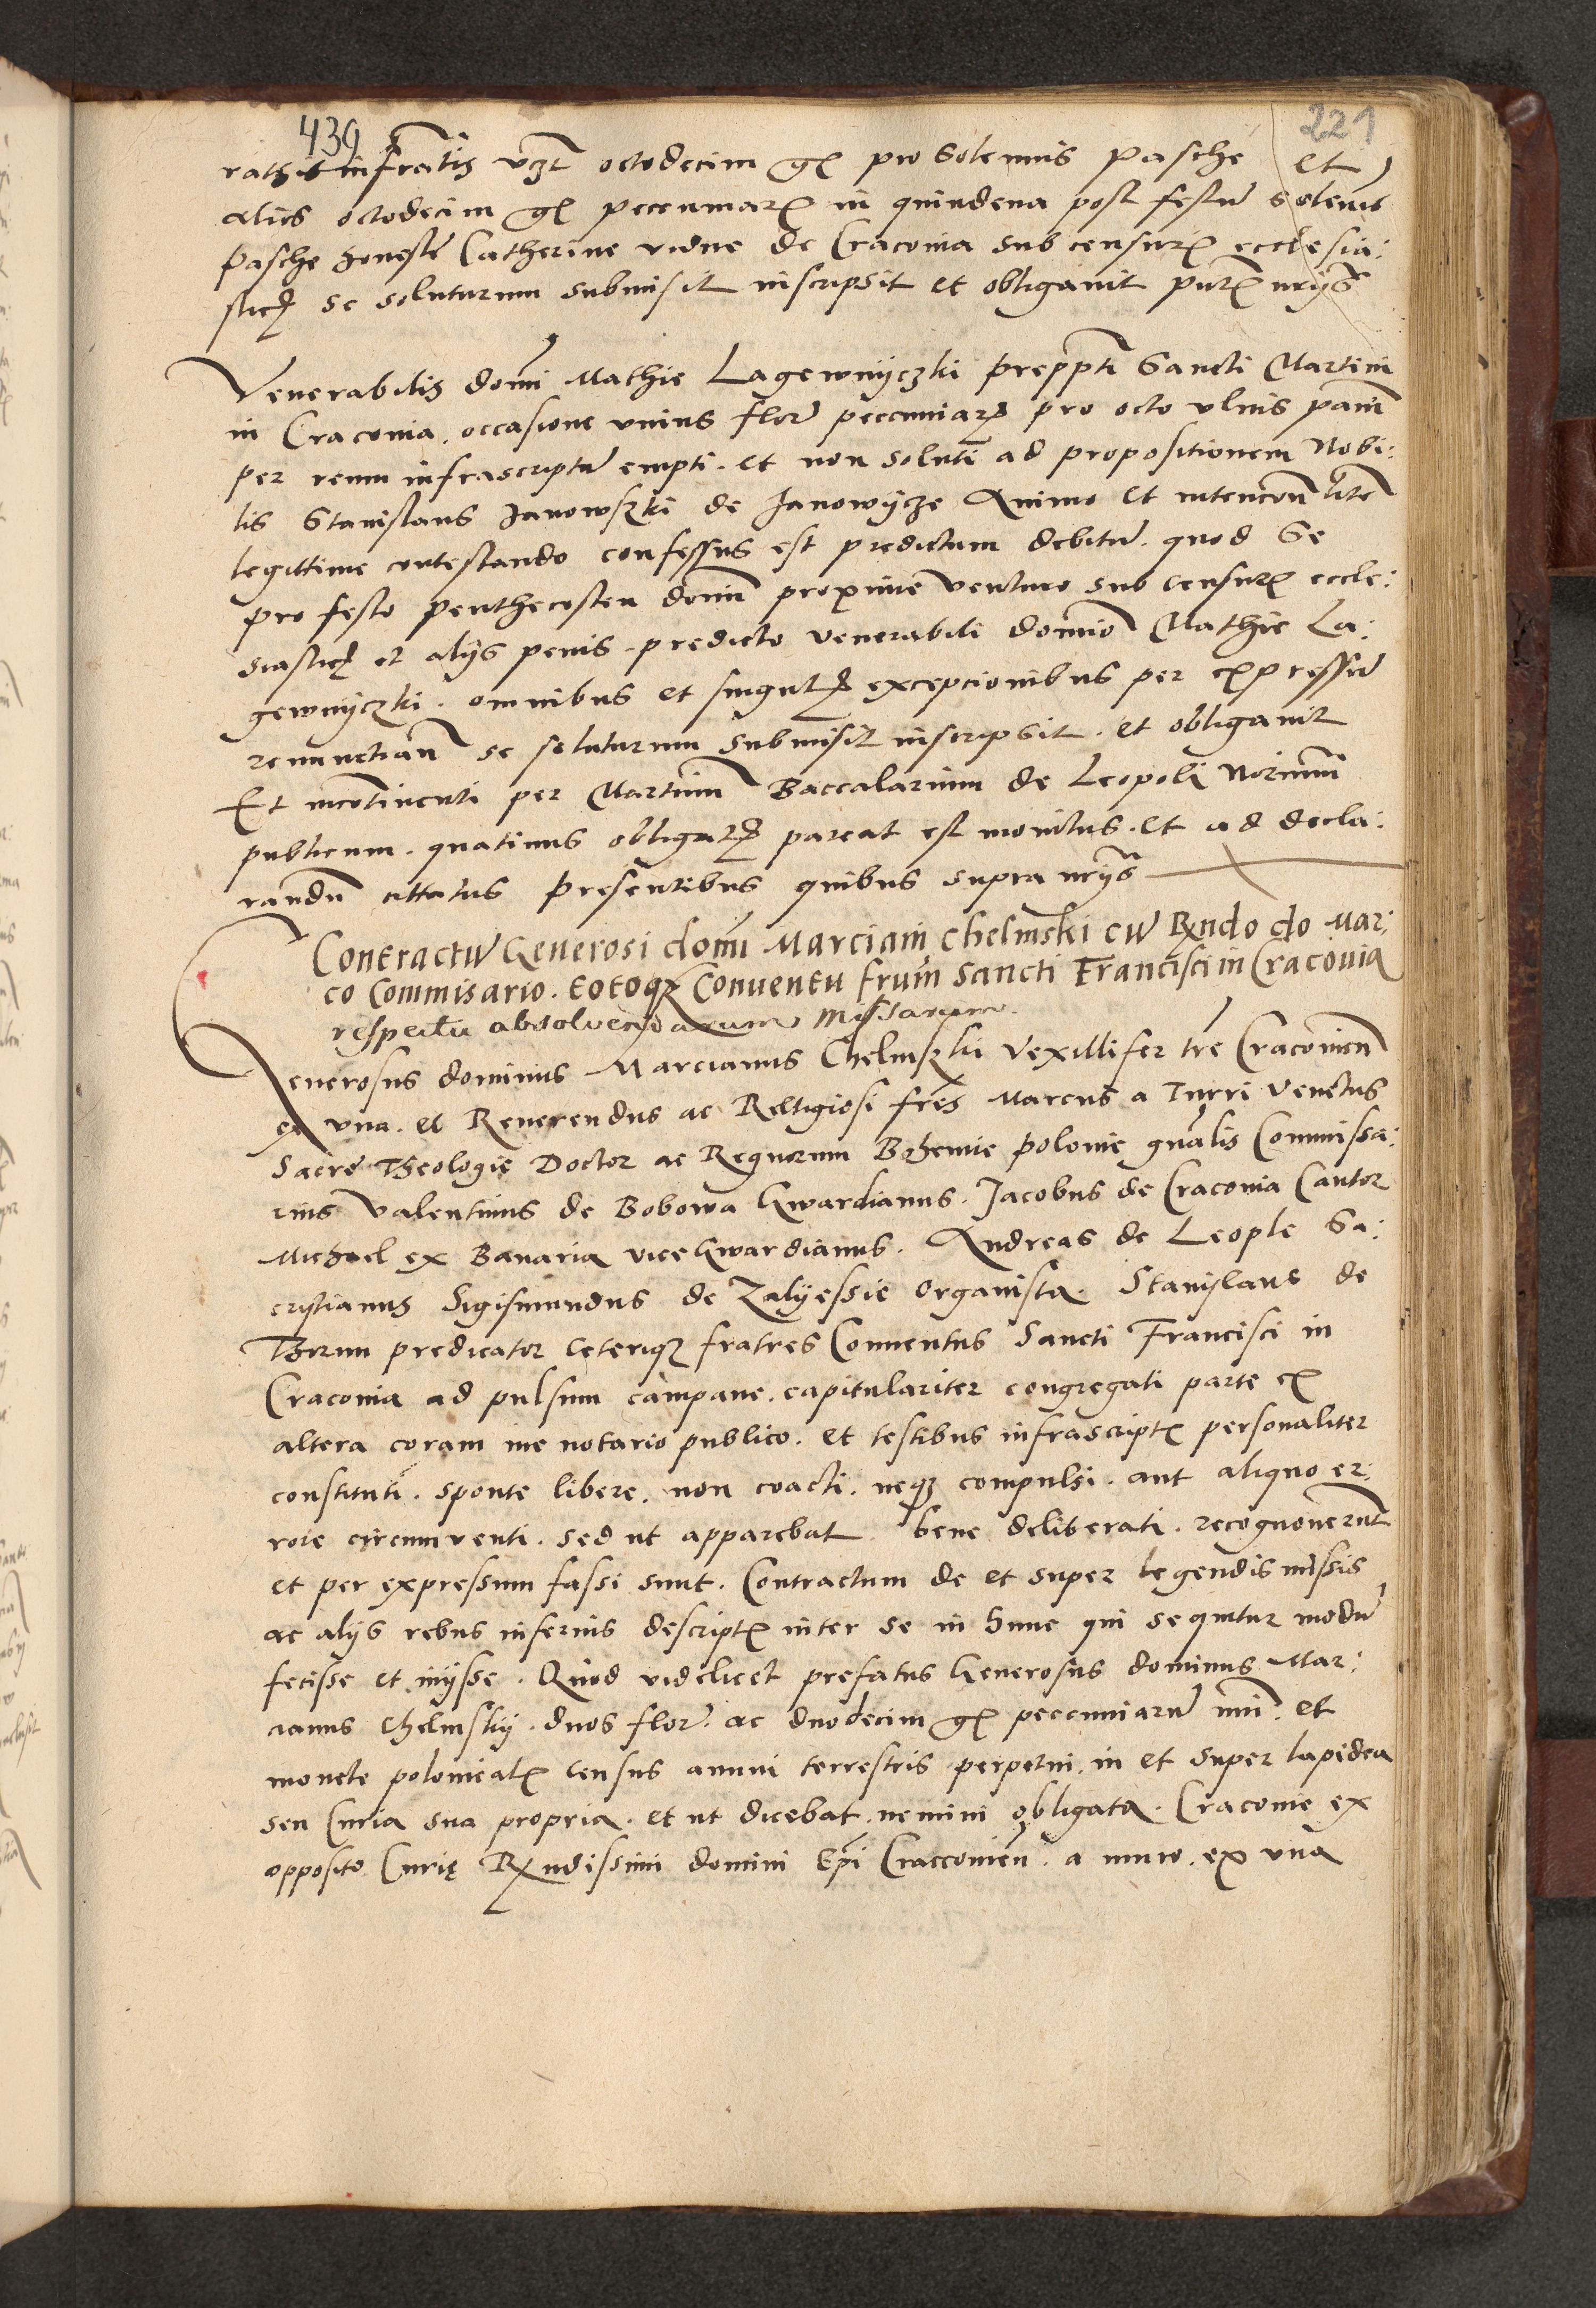 439
221
rathis infratis vczt octodecim gr pro solennis Pasche et
alios octodecim gr pecuniar in quindena post festu solenis
Pasche honeste Catherine vidue de Cracouia sub censur ecclesia:
stic se soluturum submisit inscripsit et obligauit
Venerabilis domi Mathie Lagewnyczki preppti Sancti Martini
in Cracouia, occasione vnius flor pecuniar pro octo vlnis pani
per reum infrascriptu empti. et non soluti ad propositionem Nobi:
lis Stanislaus Janowski de Janowycze Animo et intencon lite
legittime contestando confessus est predictum debitu. quod se
pro festo Penthecosten domi proxime venturo sub censur eccle:
siastic et alijs penis. predicto venerabili domio Mathie La:
gewnyczki. omnibus et singul exceptionibus per expressu
renunctian se soluturum submisit inscripsit. et obligauit
Et incontinenti per Martinu Baccalarium de Leopoli Norium
publicum. quatinus obligat pareat est monitus. et ad decla:
randu cittatus Presentibus quibus supra
Contractu Generosi domi Marciani Chelmski cu Rndo do Mar:
co Commisario. totoq Conuentu frum Sancti Francisci in Cracouia
respectu absolvendarum Missarum.
Generosus dominus Marcianus Chelmski Vexillifer tre Cracouien
ex vna. et Reuerendus ac Relligiosi fres Marcus a Turri Venetus
Sacre Theologie Doctor ac Regnorum Bohemie polonie gnalis Commissa:
rius Valentinus de Bobowa Gwardianus. Jacobus de Cracouia Cantor
Michael ex Bauaria vice Gwardianus. Andreas de Leople Sa:
cristianus Sigismundus de Zalyessie Organista. Stanislaus de
Thorun predicator Ceteriq fratres Conuentus Sancti Francisci in
Cracouia ad pulsum campane. capitulariter congregati parte ex
altera coram me notario publico. et testibus infrascript personaliter
constituti. sponte libere. non coacti. neq compulsi. aut aliquo er:
rore circumuenti. sed ut apparebat. bene deliberati. recognouerunt
et per expressum fassi sunt. Contractum de et super legendis missis
ac alijs rebus inferius descript inter se in hunc qui sequitur modu
fecisse et inijsse. Quod videlicet prefatus Generosus dominus Mar:
cianus Chelmsky. duos flor. ac duodecim gr pecuniaru nui. et
monete polonical census annui terrestris perpetui. in et super lapidea
seu Curia sua propria. et ut dicebat. nemini obligata. Cracouie ex
opposito Curię Rndissimi domini Epi Craccouien. a muro. ex vna